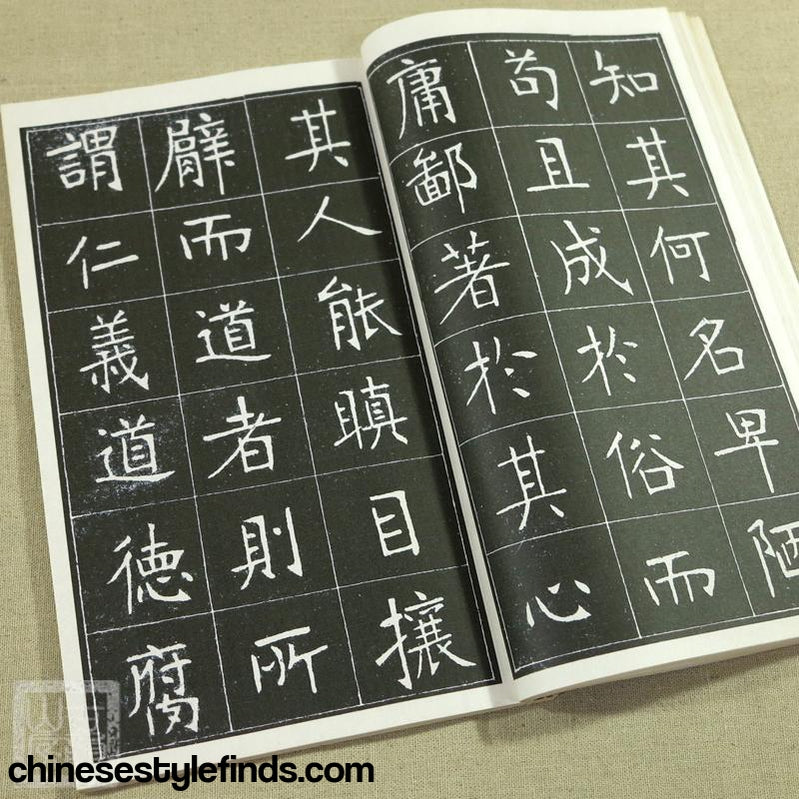 知其何名卑陋
苟且成於俗而
庸鄙著於其心
其人能瞋目攘
臂而道者則所
謂仁義道德腐
chinesestylefinds.com